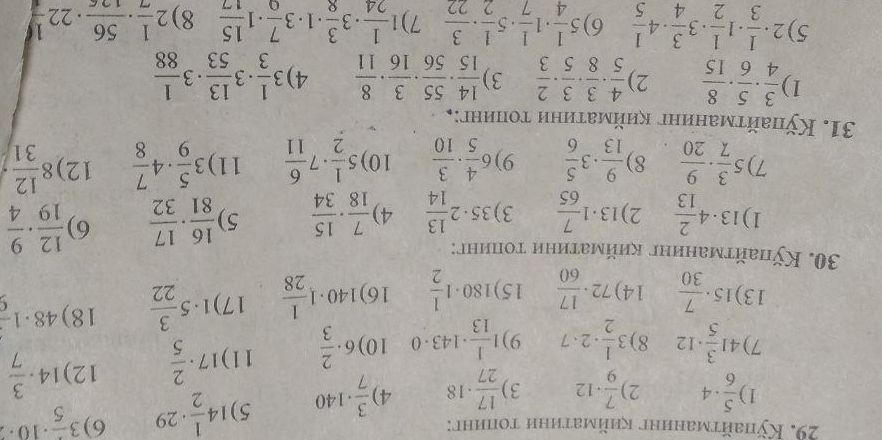 29. Кўпайтманинг қийматини топинг:
1) 5/6·4 2) 7/9·12 3) 17/27·18 4) 3/7·140 5) 14 1/2·29 6) 3
7) 41 3/5·12 8) 3 1/2·2·7 9) 1 1/13·143·0 10) 6·2/3 11) 17·2/5 12) 14·3/7
13) 15·7/30 14) 72·17/60 15) 180·1 1/2 16) 140·1 1/28 17) 1·5 3/22 18) 48·1
30. Кўпайтманинг қийматини топинг:
1) 13·4 2/13 2) 13·1 7/65 3) 35·2 13/14 4) 7/18·15/34 5) 16/81·17/32 6) 12/19·9/4
7) 5 3/7·9/20 8) 9/13·3 5/6 9) 6 4/5·3/10 10) 5 1/2·7 6/11 11) 3 5/9·4 7/8 12) 8 12/31·
31. Кўпайтманинг қийматини топинг:
1) 3/4·5/6·8/15 2) 4/5·3/8·3/5·2/3 3) 14/15·55/56·3/16·8/11 4) 3 1/3·3 13/53·3 1/88
5) 2·1/3·1 1/2·3 3/4·4 1/5 6) 5 1/4·1 1/7·5 1/2·3/22 7) 1 1/24·3 3/8·1·3 7/9·1 15/17 8) 2 1/7·56/125·22